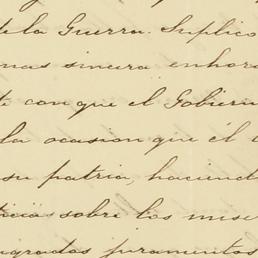 de la Guerra. Suplico
mas sincera enhora
con que el Gobiern
la ocasion que él
su patria, haciend
ticias sobre los mise
agrados juramentos